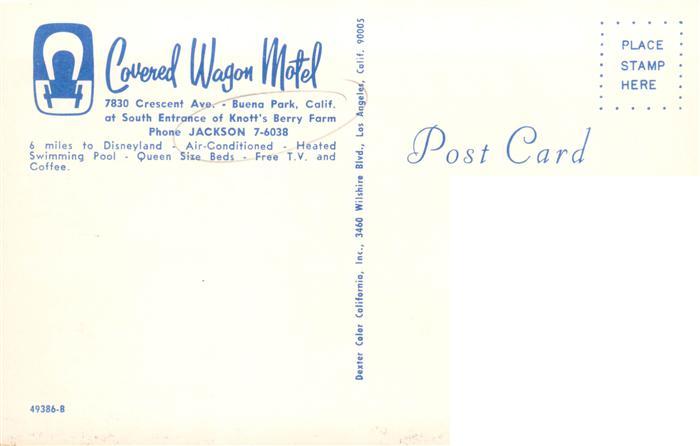 Covered Wagon Motel
7830 Crescent Ave. - Buena Park, Calif.
at South Entrance of Knott's Berry Farm
Phone JACKSON 7-6038
6 miles to Disneyland - Air-Conditioned - Heated
Swimming Pool - Queen Size Beds - Free T.V. and
Coffee.
49386-B
Dexter Color California, Inc., 3460 Wilshire Blvd., Los Angeles, Calif. 90005
PLACE
STAMP
HERE
Post Card